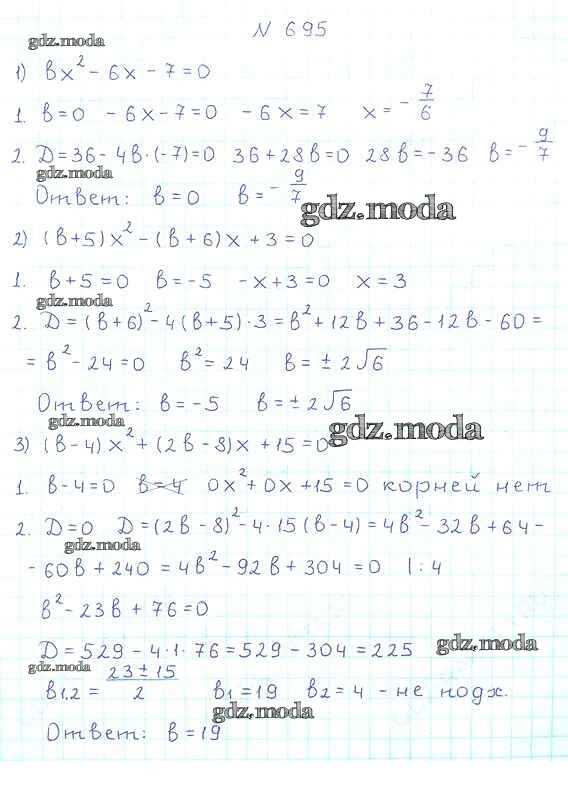 N 695
gdz.moda
1) вx² - 6x - 7 = 0
1. в=0 - 6x - 7 = 0 - 6x = 7 x = - 7/6
2. D = 36 - 4в·(-7) = 0 36 + 28в = 0 28в = -36 в = - 9/7
gdz.moda
Ответ: в = 0 в = - 9/7
gdz.moda
2) (в+5)x² - (в+6)x + 3 = 0
1. в+5 = 0 в = -5 -x+3 = 0 x = 3
gdz.moda
2. D = (в+6)² - 4(в+5)·3 = в² + 12в + 36 - 12в - 60 =
= в² - 24 = 0 в² = 24 в = ± 2√6
Ответ: в = -5 в = ± 2√6
gdz.moda
gdz.moda
3) (в-4)x² + (2в-8)x + 15 = 0
1. в-4=0 в=4 0x² + 0x + 15 = 0 корней нет
2. D=0 D = (2в-8)² - 4·15(в-4) = 4в² - 32в + 64 -
gdz.moda
- 60в + 240 = 4в² - 92в + 304 = 0 |:4
в² - 23в + 76 = 0
D = 529 - 4·1·76 = 529 - 304 = 225
gdz.moda
gdz.moda
в1,2 = 23±15/2 в1 = 19 в2 = 4 - не подх.
gdz.moda
Ответ: в = 19